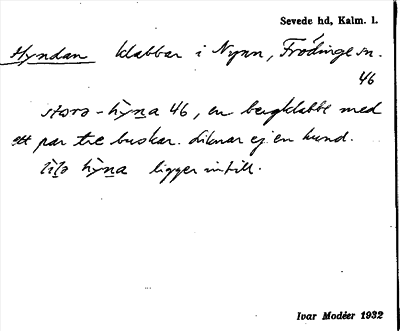 Sevede hd, Kalm. l.
Hyndan klabbar i Nynn, Frödinge sn.
46
stora - hyna 46, en bergklabbe med
ett par tre buskar. liknar ej en hund.
lila hyna ligger intill.
Ivar Modéer 1932